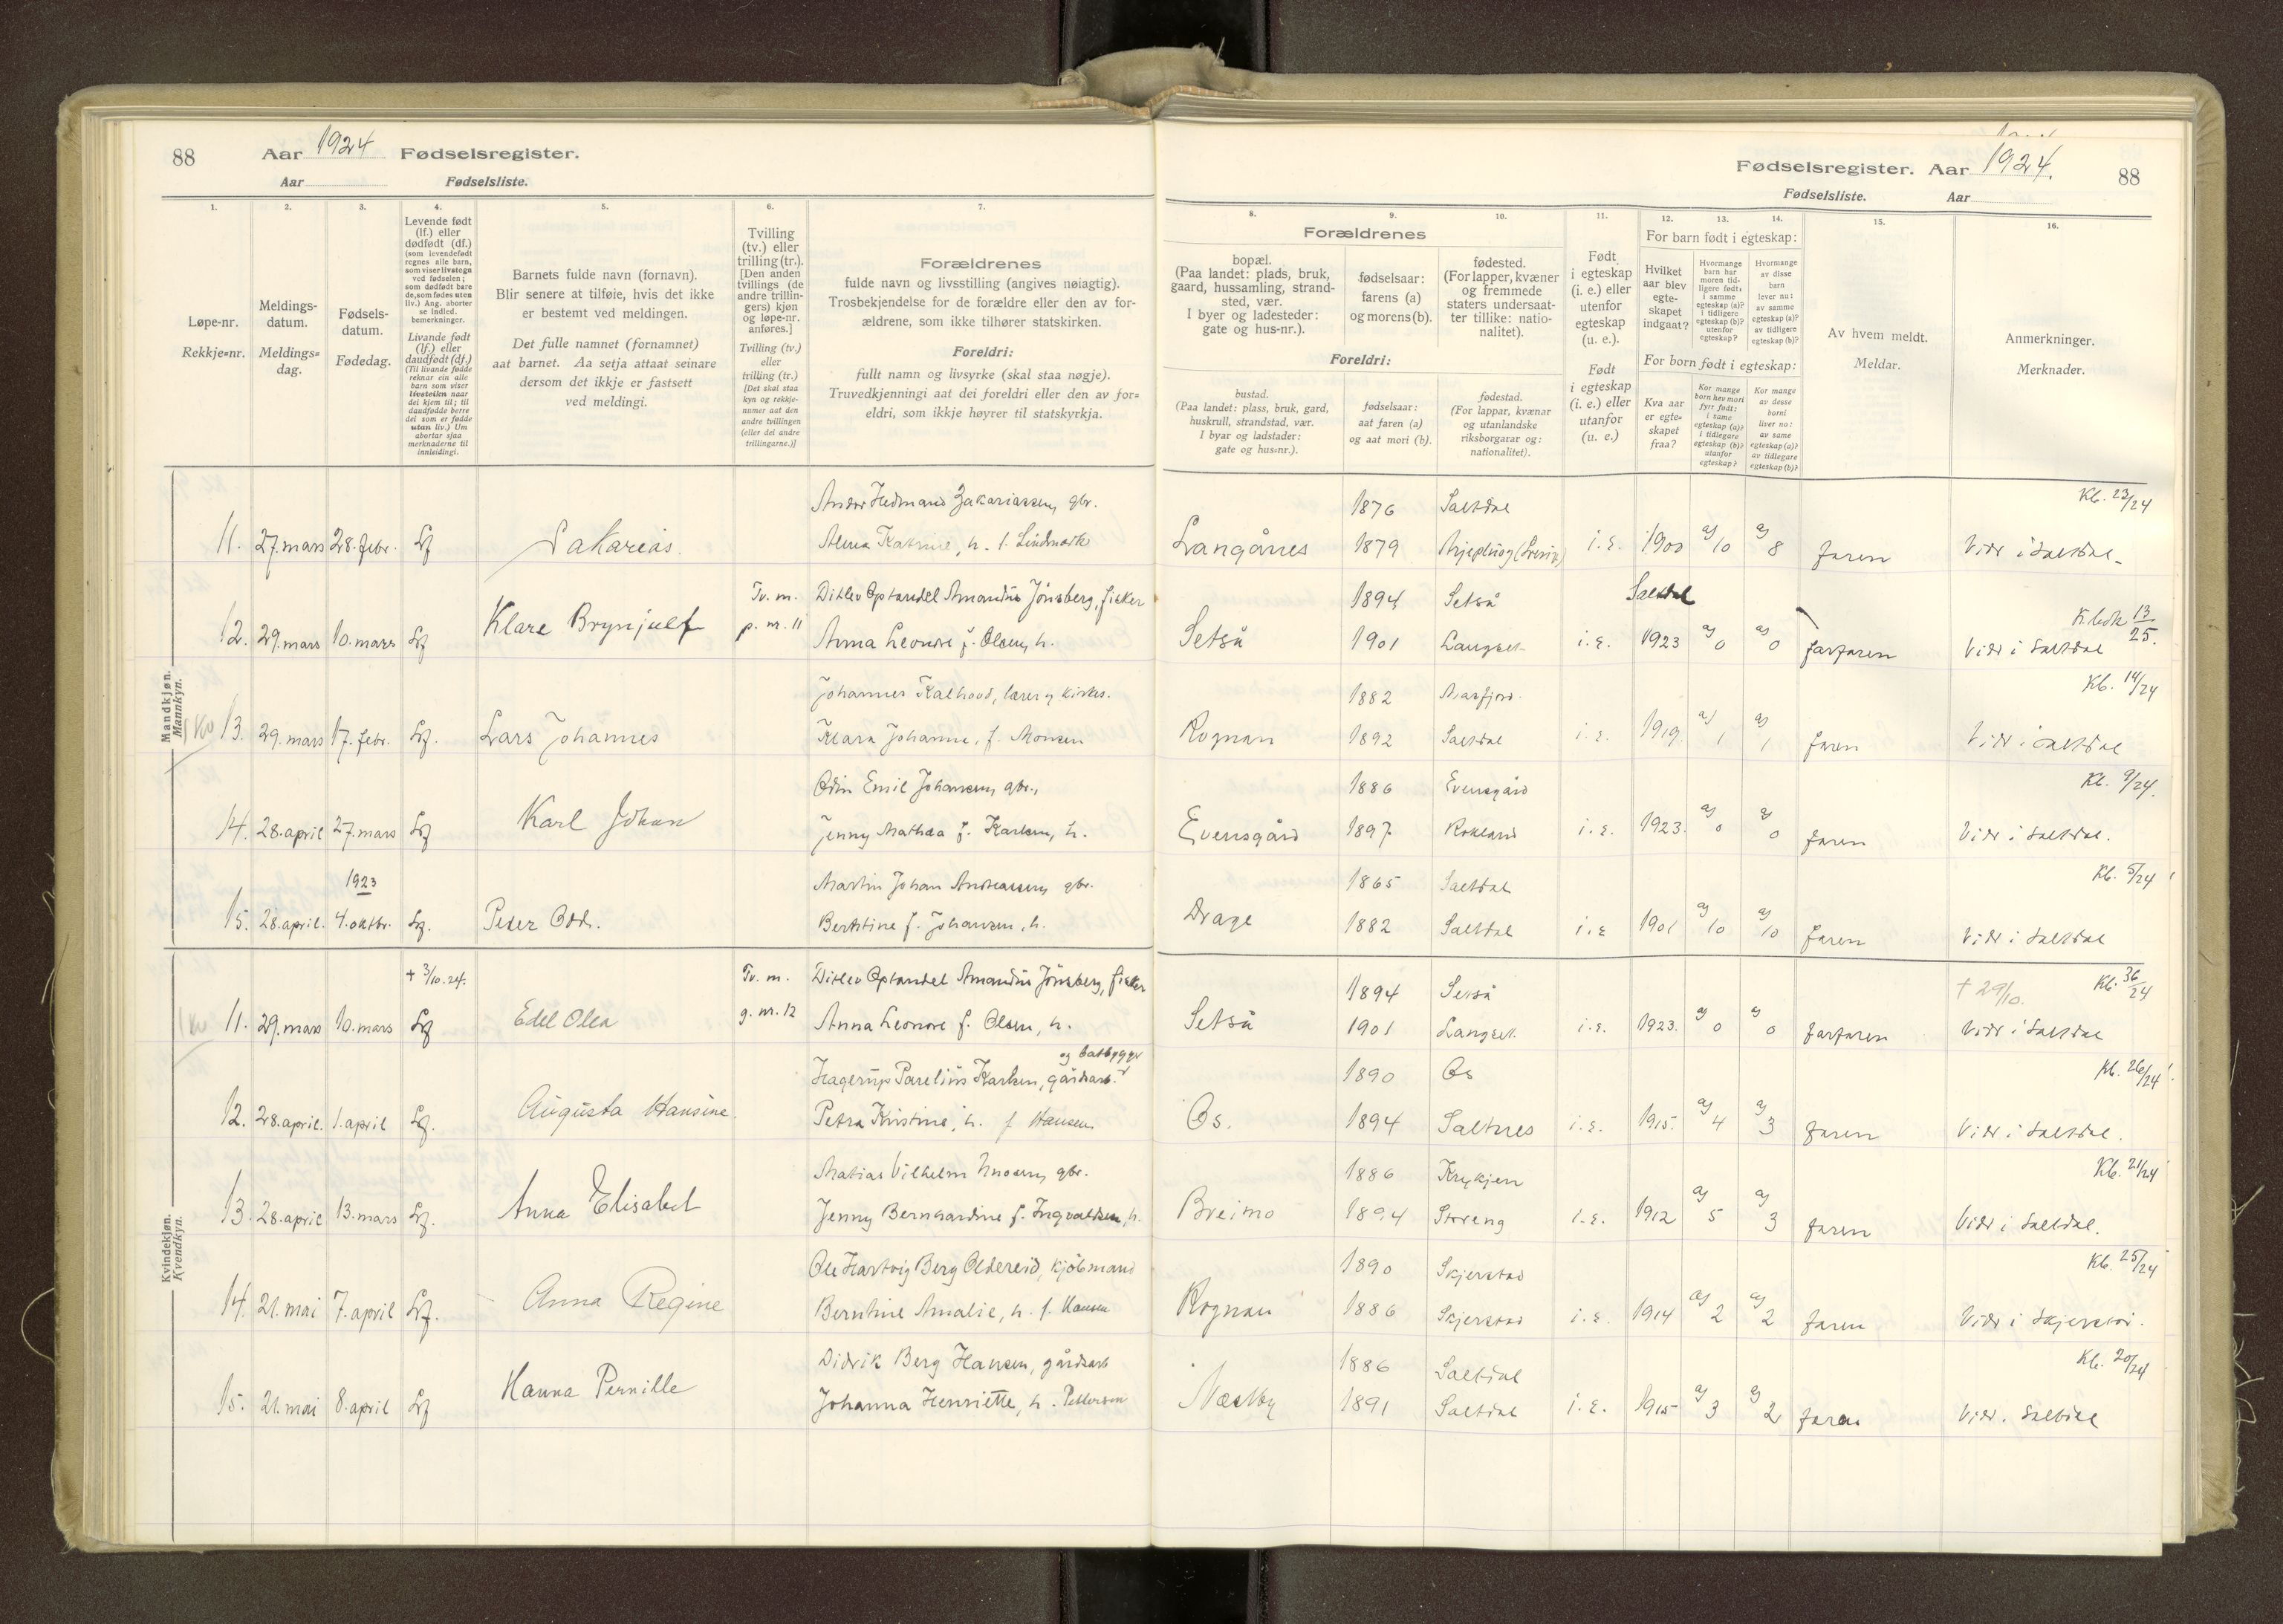 88 Aar 1924 Fødselsregister.
Aar Fødselsliste.
Fødselsregister. Aar 1924. 88
Fødselsliste. Aar
1. 2. 3. 4. 5. 6. 7.
8. 9. 10. 11. 12. 13. 14. 15. 16.
Løpe-nr.
Rekkje=nr.
Meldings-
datum.
Meldings=
dag.
Fødsels-
datum.
Fødedag.
Levende født
(lf.) eller
dødfødt (df.)
(som levendefødt
regnes alle barn,
som viser livstegn
ved fødselen;
som dødfødt bare
de, som fødes uten
liv.) Ang. aborter
se indled.
bemerkninger.
Livande født
(lf.) eller
daudfødt (df.)
(Til livande fødde
reknar ein alle
barn som viser
livsteikn naar
dei kjem til; til
daudfødde berre
dei som er fødde
utan liv.) Um
abortar sjaa
merknaderne til
innleidingi.
Barnets fulde navn (fornavn).
Blir senere at tilføie, hvis det ikke
er bestemt ved meldingen.
Det fulle namnet (fornamnet)
aat barnet. Aa setja attaat seinare
dersom det ikkje er fastsett
ved meldingi.
Tvilling
(tv.) eller
trilling (tr.).
[Den anden
tvillings (de
andre trillin-
gers) kjøn
og løpe-nr.
anføres.]
Tvilling (tv.)
eller
trilling (tr.)
[Det skal staa
kyn og rekkje-
numer aat den
andre tvillingen
(eller dei andre
trillingarne.)]
Forældrenes
fulde navn og livsstilling (angives nøiagtig).
Trosbekjendelse for de forældre eller den av for-
ældrene, som ikke tilhører statskirken.
Foreldri:
fullt namn og livsyrke (skal staa nøgje).
Truvedkjenningi aat dei foreldri eller den av for=
eldri, som ikkje høyrer til statskyrkja.
Forældrenes
bopæl.
(Paa landet: plads, bruk,
gaard, hussamling, strand-
sted, vær.
I byer og ladesteder:
gate og hus-nr.).
fødselsaar:
farens (a)
og morens (b).
fødested.
(For lapper, kvæner
og fremmede
staters undersaat-
ter tillike: natio-
nalitet).
Foreldri:
bustad.
(Paa landet: plass, bruk, gard,
huskrull, strandstad, vær.
I byar og ladstader:
gate og hus=nr.).
fødselsaar:
aat faren (a)
og aat mori (b).
fødestad.
(For lappar, kvænar
og utanlandske
riksborgarar og:
nationalitet).
Født
i egteskap
(i. e.) eller
utenfor
egteskap
(u. e.).
Født
i egteskap
(i. e.) eller
utanfor
(u. e.)
For barn født i egteskap:
Hvilket
aar blev
egte-
skapet
indgaat?
Hvormange
barn har
moren tid-
ligere født:
i samme
egteskap (a)?
i tidligere
egteskap (b)?
utenfor
egteskap?
Hvormange
av disse
barn
lever nu:
av samme
egteskap (a)?
av tidligere
egteskap (b)?
For born født i egteskap:
Kva aar
er egte=
skapet
fraa?
Kor mange
born hev mori
fyrr født:
i same
egteskap (a)?
i tidlegare
egteskap (b)?
utanfor
egteskap?
Kor mange
av desse
borni
liver no:
av same
egteskap (a)?
av tidlegare
egteskap (b)?
Av hvem meldt.
Meldar.
Anmerkninger.
Merknader.
Mandkjøn.
Mannkyn.
Zakariassen, gbr. 1876 Saltdal Kb. 23/24
11. 27. mars 28. febr. Lf Sakarias Katrine, h. f. Langånes 1879 i. e. 1900 a) 10 a) 8 faren Vidr i Saltdal
Tv. m. Ditlev Amandus Jönsberg, fisker 1894 Setså Saltdal 13/25.
12. 29. mars 10. mars Lf Klare Brynjulf p. nr. 11 Anna Leonore f. Olsen, h. Setså 1901 i. e. 1923 a) 0 a) 0 farfaren Vidr i Saltdal
Johannes Kalhovd, lærer og kirkes. 1882 Kb. 14/24
13. 29. mars 17. febr. Lf. Lars Johannes Klara Johanne, f. Monsen Rognan 1892 Saltdal i. e. 1919. a) 1 a) 1 faren Vidr i Saltdal
Odin Emil Johansen, gbr., 1886 Evensgård Kb. 9/24.
14. 28. april 27. mars Lf Karl Johan Jenny Mathea f. Karlsen, h. Evensgård 1897 Rokland i. e. 1923. a) 0 a) 0 faren Vidr i Saltdal.
1923 Martin Johan Andreassen, gbr. 1865 Saltdal Kb. 5/24
15. 28. april. 4. oktbr. Lf. Peder Odd. f. Johansen, h. Drage 1882 Saltdal i. e 1901 a) 10 a) 10 faren Vidr i Saltdal
Kvindekjøn.
Kvendkyn.
+ 3/10. 24. Tv. m. Ditlev Amandus Jönsberg, fisker 1894 Setså + 29/10. Kb. 36/24
11. 29. mars 10. mars Lf Edel Olea g. nr. 12 Anna Leonore f. Olsen, h. Setså 1901 i. e. 1923. a) 0 a) 0 farfaren Vidr i Saltdal
og båtbygger
Hagerup Parelius Karlsen, gårdsarb. 1890 Os Kb. 26/24
12. 28. april. 1. april Lf. Augusta Hansine. Petra Kristine, h. f Hansen Os. 1894 Saltnes i. e. 1915. a) 4 a) 3 faren Vidr i Saltdal.
Matias Vilhelm gbr. 1886 Kb. 21/24
13. 28. april 13. mars Lf. Anna Elisabet Jenny Berngardine f. Ingvaldsen, h. Breimo 1894 Storeng i. e. 1912 a) 5 a) 3 faren Vidr i Saltdal.
Ole Hartvig Berg Oldereid, kjöbmand 1890 Skjerstad Kb. 25/24
14. 21. mai 7. april Lf. Anna Regine Berntine Amalie, h. f. Hansen Rognan 1886 Skjerstad i. e. 1914 a) 2 a) 2 faren Vidr i Skjerstad.
Didrik Berg Hansen, gårdsarb 1886 Saltdal Kb. 20/24
15. 21. mai 8. april Lf Hanna Pernille Johanna Henriette, h. Pettersen Næstby 1891 Saltdal i. e. 1915 a) 3 a) 2 faren Vidr. Saltdal